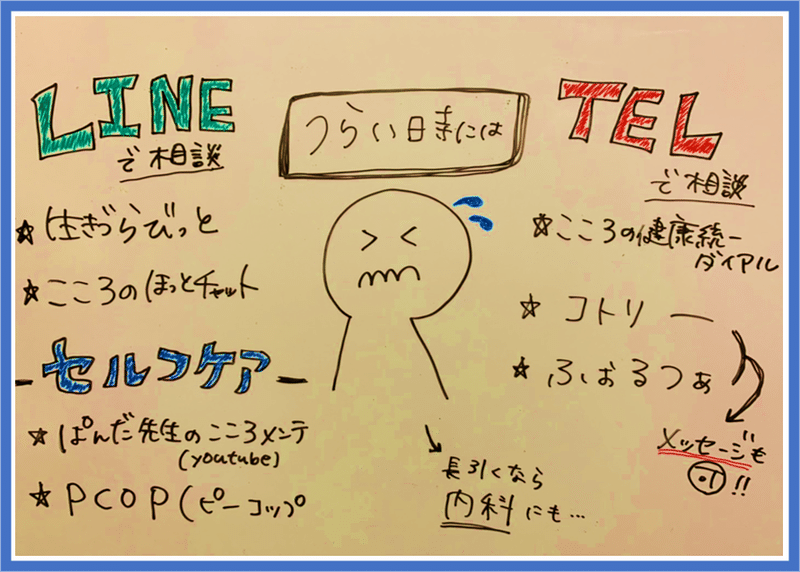 つらい時には
LINE
で相談
☆生きづらびっと
☆こころのほっとチャット
セルフケア
☆ぱんだ先生のこころメンテ
(youtube)
☆PCOP(ピーコップ
TEL
で相談
☆こころの健康統一
ダイアル
☆コトリー
☆ふぁるつぁ
メッセージも
可!!
長引くなら
内科にも…